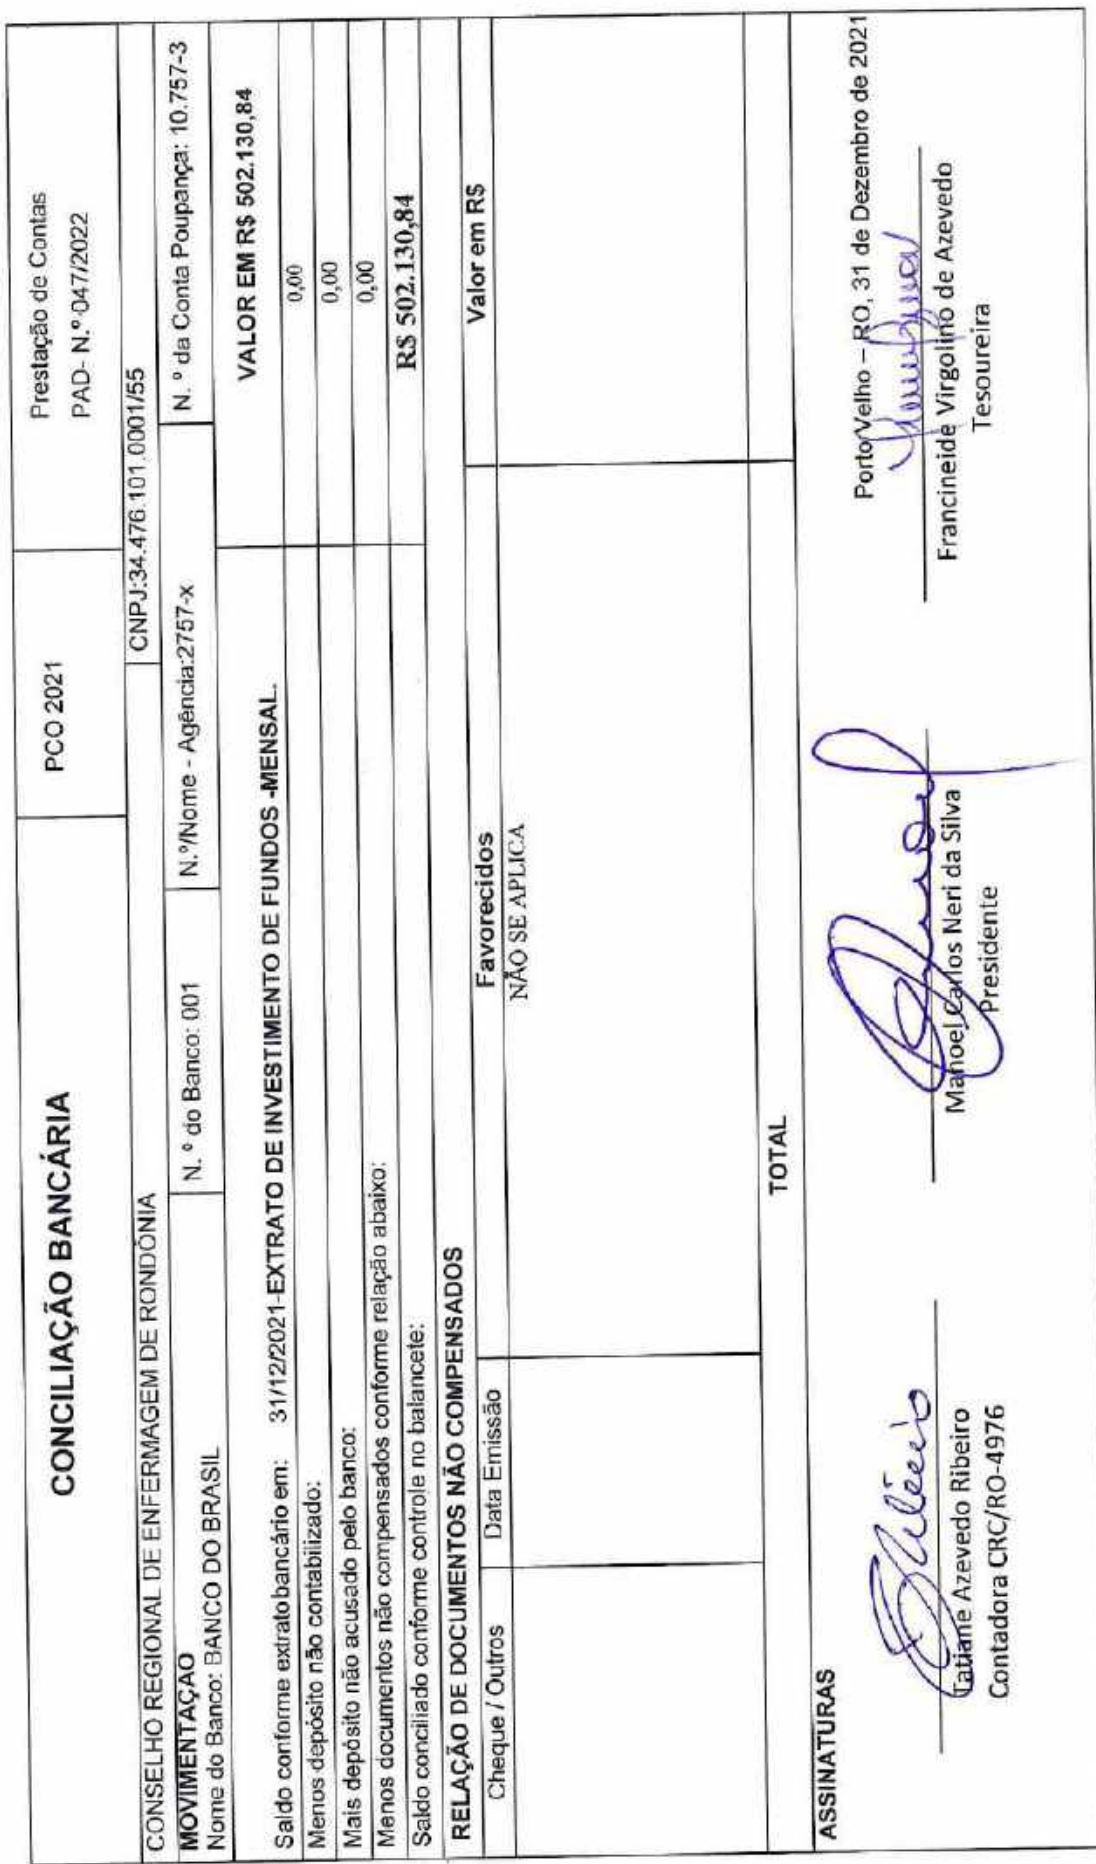 CONCILIAÇÃO BANCÁRIA
PCO 2021
Prestação de Contas
PAD- N.º 047/2022
CONSELHO REGIONAL DE ENFERMAGEM DE RONDÔNIA
CNPJ:34.476.101.0001/55
MOVIMENTAÇÃO
Nome do Banco: BANCO DO BRASIL
N. º do Banco: 001
N.º/Nome - Agência:2757-x
N. º da Conta Poupança: 10.757-3
VALOR EM R$ 502.130,84
Saldo conforme extrato bancário em: 31/12/2021-EXTRATO DE INVESTIMENTO DE FUNDOS -MENSAL.
Menos depósito não contabilizado: 0,00
Mais depósito não acusado pelo banco: 0,00
Menos documentos não compensados conforme relação abaixo: 0,00
Saldo conciliado conforme controle no balancete: R$ 502.130,84
RELAÇÃO DE DOCUMENTOS NÃO COMPENSADOS
Cheque / Outros Data Emissão Favorecidos Valor em R$
NÃO SE APLICA
TOTAL
ASSINATURAS
Porto Velho – RO, 31 de Dezembro de 2021
Tatiane Azevedo Ribeiro
Contadora CRC/RO-4976
Manoel Carlos Neri da Silva
Presidente
Francineide Virgolino de Azevedo
Tesoureira